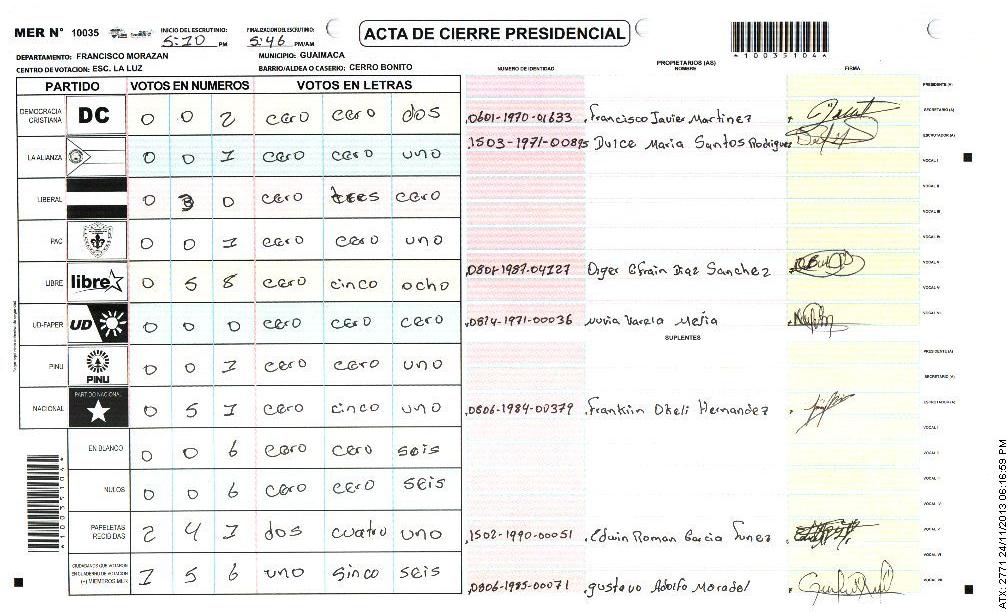 MER N° 10035 INICIO DEL ESCRUTINIO: 5:20 PM FINALIZACION DEL ESCRUTINIO: 5:46 PM/AM ACTA DE CIERRE PRESIDENCIAL *10035104*
DEPARTAMENTO: FRANCISCO MORAZAN MUNICIPIO: GUAIMACA
CENTRO DE VOTACION: ESC. LA LUZ BARRIO/ALDEA O CASERIO: CERRO BONITO
NUMERO DE IDENTIDAD PROPIETARIOS (AS) NOMBRE FIRMA
PARTIDO VOTOS EN NUMEROS VOTOS EN LETRAS PRESIDENTE (A)
DEMOCRACIA CRISTIANA DC 0 0 2 cero cero dos 0601-1970-01633 Francisco Javier Martinez SECRETARIO (A)
1503-1971-00895 Dulce Maria Santos Rodriguez ESCRUTADOR (A)
LA ALIANZA 0 0 1 cero cero uno VOCAL I
LIBERAL 0 3 0 cero tres cero VOCAL II
VOCAL III
PAC 0 0 1 cero cero uno VOCAL IV
LIBRE libre 0 5 8 cero cinco ocho 0801-1987-04127 Diger Efrain Diaz Sanchez VOCAL V
VOCAL V
UD-FAPER UD 0 0 0 cero cero cero 0814-1971-00036 Nuvia Varela Mejia VOCAL VII
SUPLENTES
PINU PINU 0 0 1 cero cero uno PRESIDENTE (A)
SECRETARIO (A)
NACIONAL PARTIDO NACIONAL 0 5 1 cero cinco uno 0806-1984-00379 Franklin Okeli Hernandez ESCRUTADOR (A)
VOCAL I
EN BLANCO 0 0 6 cero cero seis
NULOS 0 0 6 cero cero seis
PAPELETAS RECIBIDAS 2 4 1 dos cuatro uno 1502-1990-00051 Edwin Roman Garcia Funez
VOCAL VI
CIUDADANOS QUE VOTARON EN CUADERNO DE VOTACION (+) MIEMBROS MER 1 5 6 uno sinco seis 0806-1985-00071 gustavo Adolfo Moradel
*10035104*
ATX: 2771 24/11/2013 06:16:59 PM